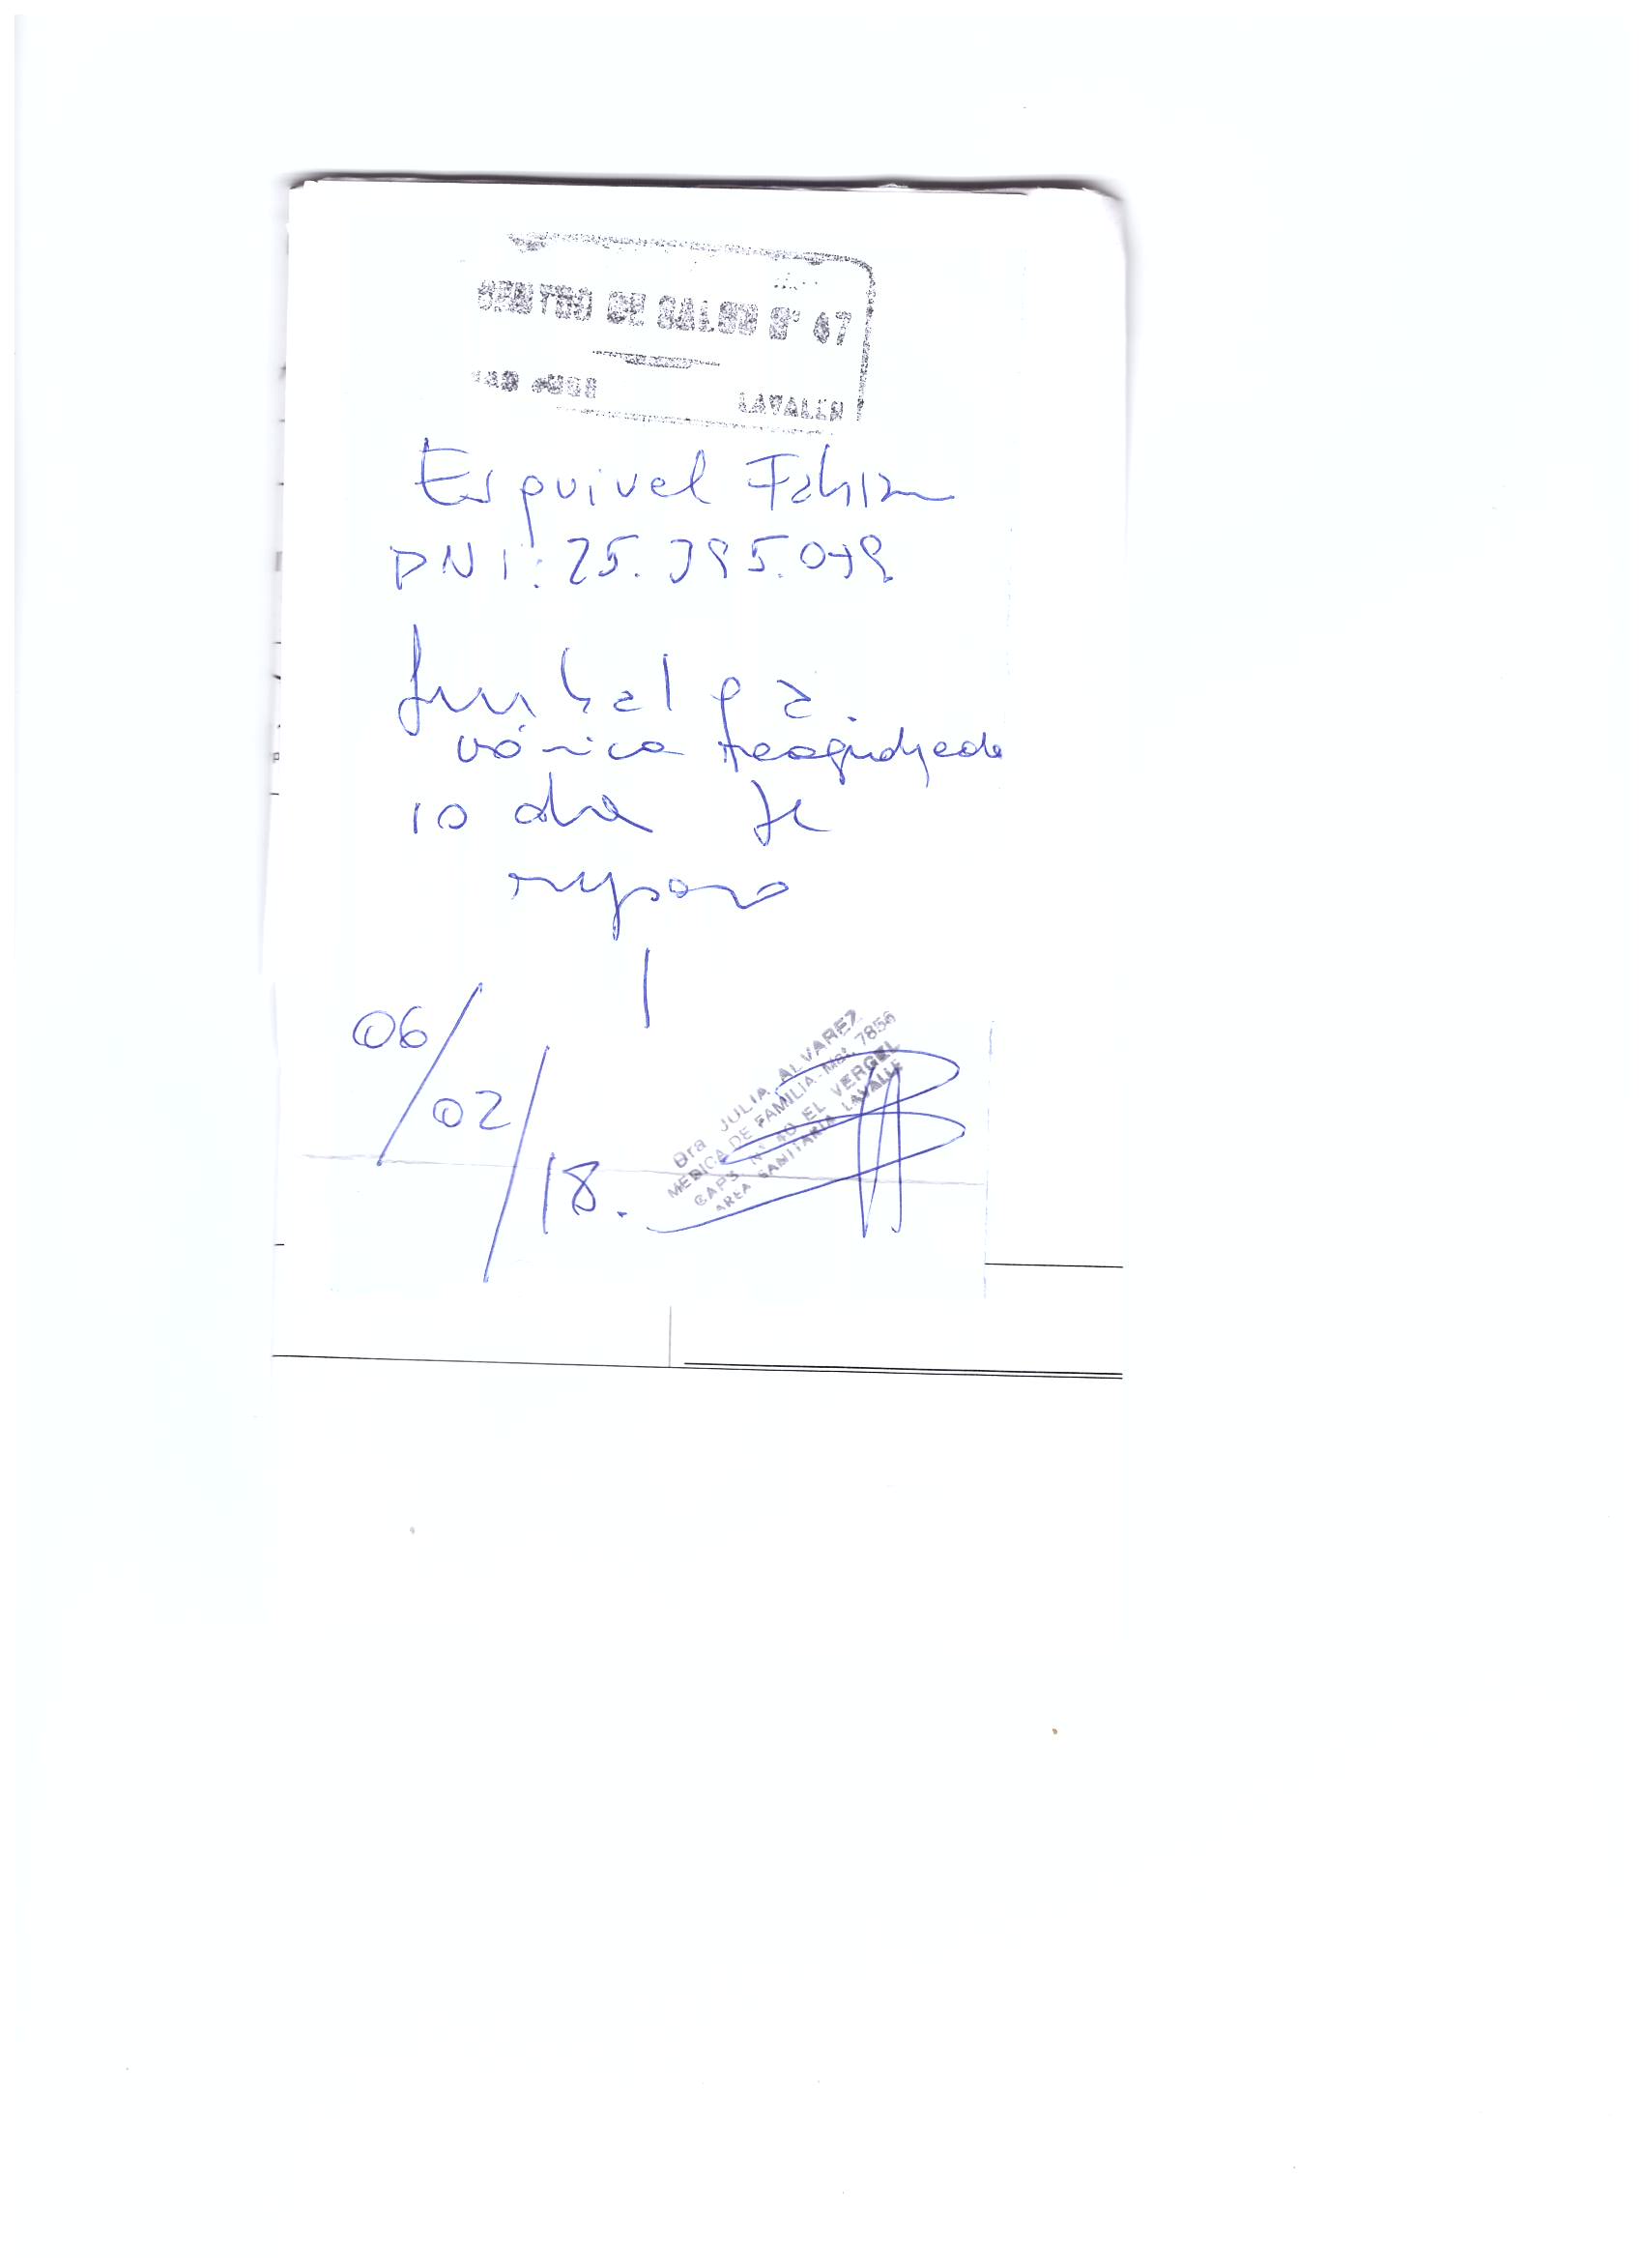 CENTRO DE SALUD Nº 47
LAVALLE
Esquivel Fabian
DNI: 25.395.079
Lumbalgia.
crónica reagudizada
10 dias de
reposo
06/02/18.
Dra JULIA ALVAREZ
MEDICA DE FAMILIA - Mat. 7856
CAPS. Nº 40 EL VERGEL
AREA SANITARIA LAVALLE